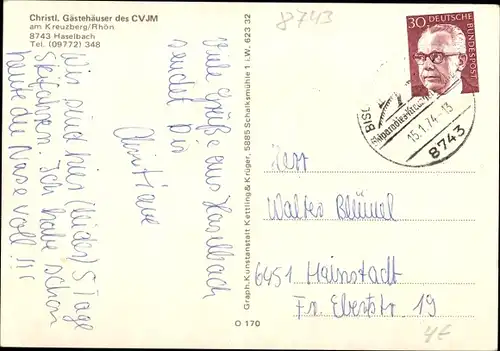 Christl. Gästehäuser des CVJM
am Kreuzberg/Rhön
8743 Haselbach
Tel. (09772) 348
8743
Viele Grüße aus Haselbach
sendet Dir
Christiane
Wir sind hier (leider) 5 Tage
Skifahren. Ich habe schon
heute die Nase voll !!!
Graph. Kunstanstalt Kettling & Krüger, 5885 Schalksmühle 1 i.W. 623 32
O 170
30
DEUTSCHE
BUNDESPOST
15.1.74-13
8743
Herr
Walter Blümel
6451 Hainstadt
Fr. Ebertstr. 19
4€